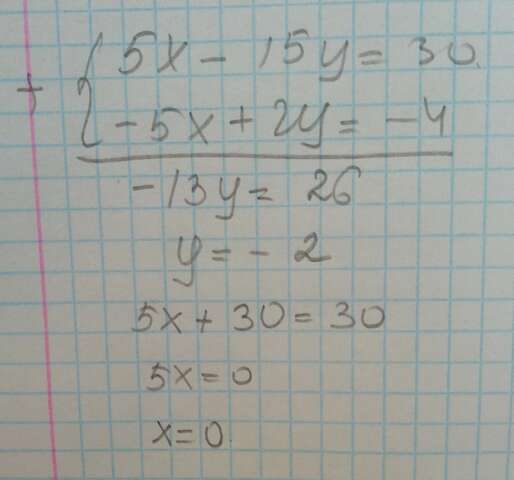 + { 5x - 15y = 30.
-5x + 2y = -4
-13y = 26
y = - 2
5x + 30 = 30
5x = 0
x = 0.